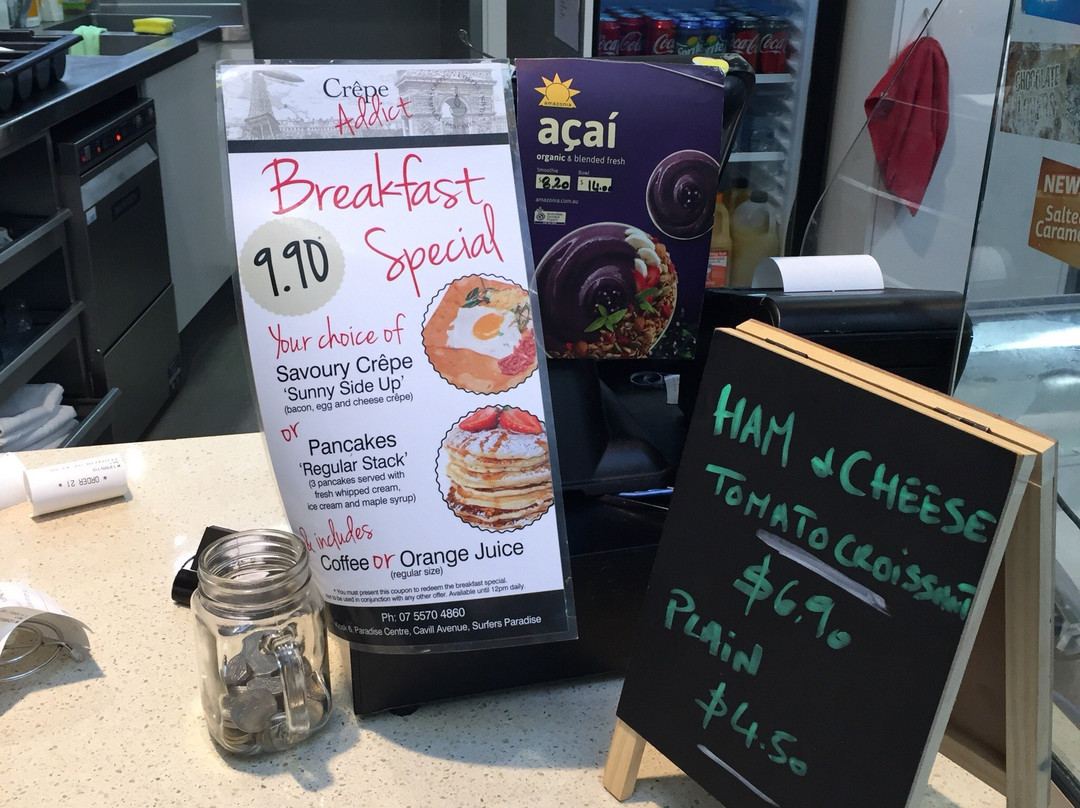 Crêpe
Addict
Breakfast
Special
9.90
Your choice of
Savoury Crêpe
'Sunny Side Up'
(bacon, egg and cheese crêpe)
or
Pancakes
'Regular Stack'
(3 pancakes served with
fresh whipped cream,
ice cream and maple syrup)
& includes
Coffee or Orange Juice
(regular size)
* You must present this coupon to redeem the breakfast special.
to be used in conjunction with any other offer. Available until 12pm daily.
Ph: 07 5570 4860
Kiosk 6, Paradise Centre, Cavill Avenue, Surfers Paradise
amazonia
açaí
organic & blended fresh
Smoothie
Bowl
$8.20
$14.00
amazonia.com.au
HAM & CHEESE
TOMATO CROISSANT
$6.90
PLAIN
$4.50
ORDER 21
Coca
Coca
CHOCOLATE
NEW
Salte
Caram